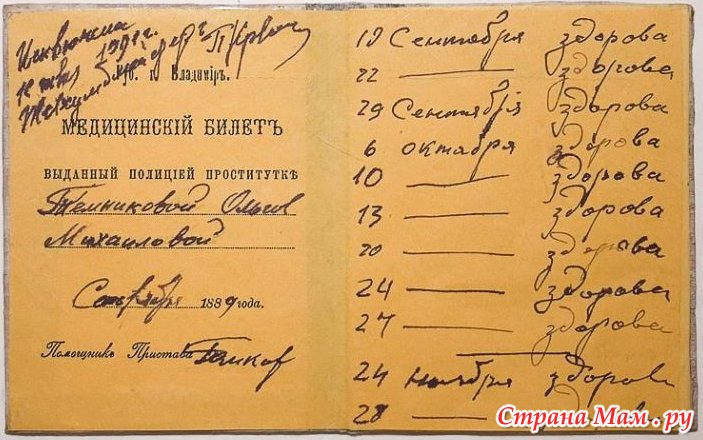 Губ. г. Владиміръ.
МЕДИЦИНСКІЙ БИЛЕТЪ
ВЫДАННЫЙ ПОЛИЦІЕЙ ПРОСТИТУТКѢ
Темниковой Ольге
Михаиловой
Сентября 1889 года.
Помощникъ Пристава
19 Сентября здорова
22 — здорова
29 Сентября здорова
6 октября здорова
10 — здорова
13 — здорова
20 — здорова
24 — здорова
27 — здорова
24 ноября здорова
28 —
Страна Мам.ру